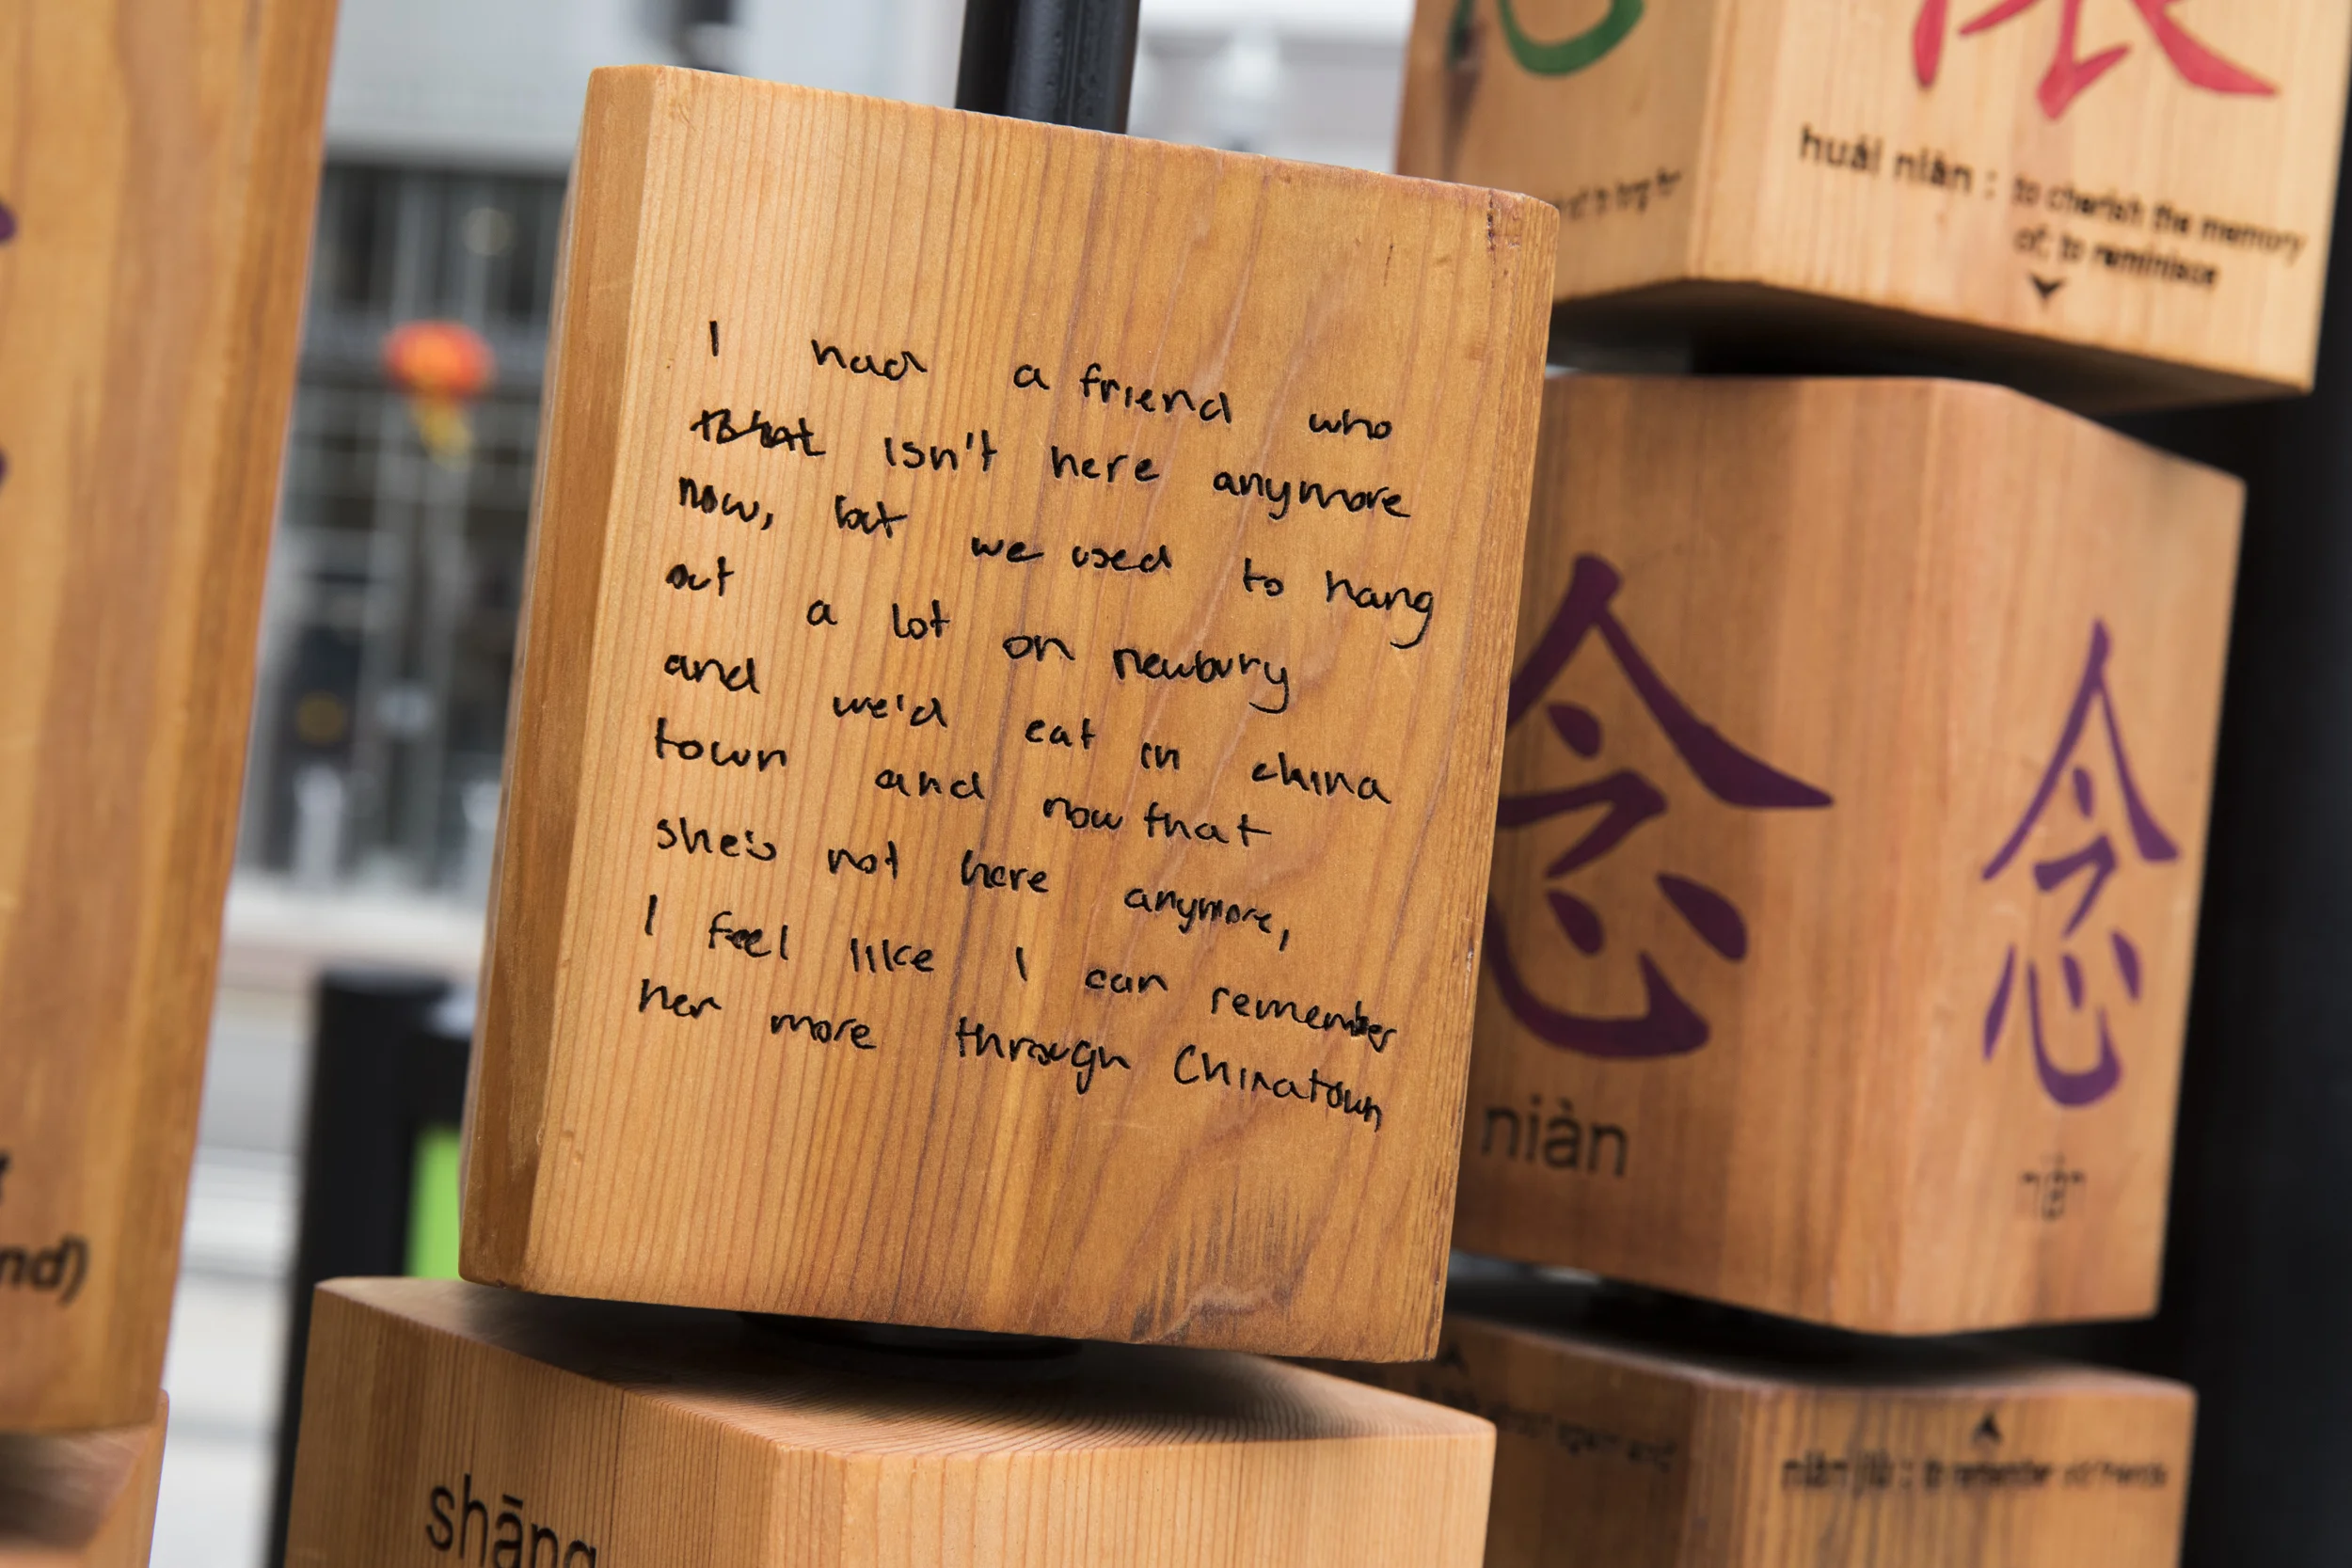 I had a friend who
that isn't here anymore
now, but we used to hang
out a lot on newbury
and we'd eat in china
town and now that
she's not here anymore,
I feel like I can remember
her more through Chinatown
huái niàn : to cherish the memory
of; to reminisce
to long for
念
niàn
念
niàn jiù : to remember old friends
shāng
nd)